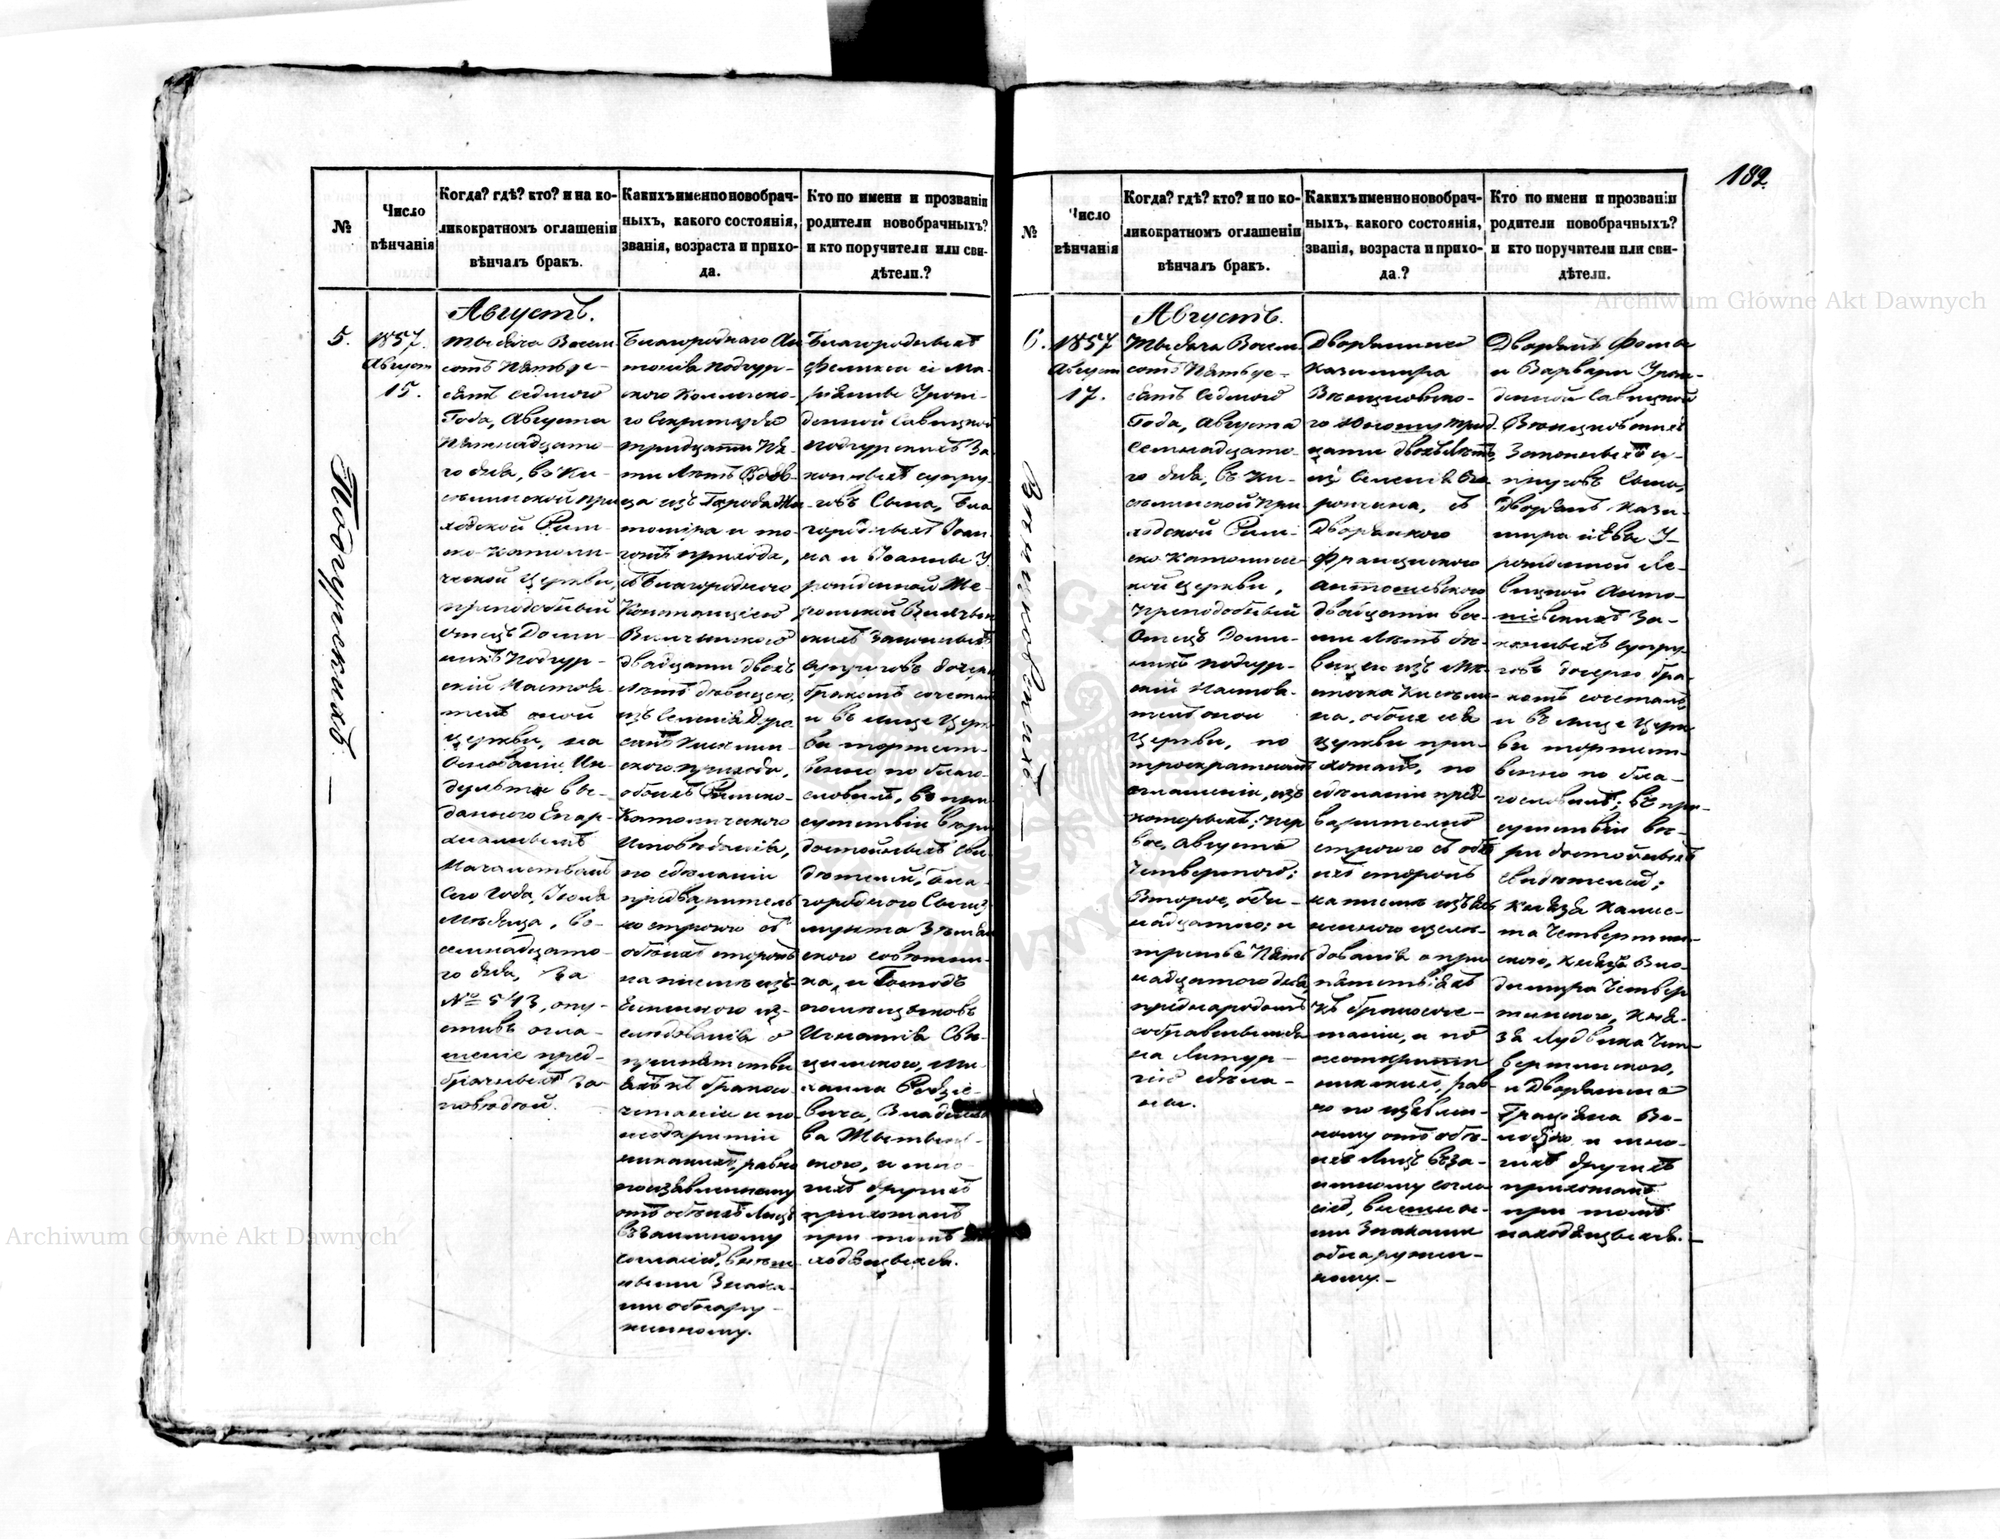 182.
№
Число
вѣнчанія
Когда? гдѣ? кто? и на ко-
ликократномъ оглашеніи
вѣнчалъ бракъ.
Какихъ именно новобрач-
ныхъ, какого состоянія,
званія, возраста и прихо-
да.
Кто по имени и прозванію
родители новобрачныхъ?
и кто поручители или сви-
дѣтели.?
5.
1857.
Август
15.
Подгурскихъ. —
Августъ.
Тысяча Восем
сотъ Пятьде-
сятъ седмого
Года, Августа
Пятнадцато-
го дня, въ Ки-
селинской При
ходской Рим-
ко-Католи-
ческой Церкви,
преподобный
Отецъ Доми-
никъ Подгур-
скій Настоя-
тель оной
Церкви, на
Основаніи Ин-
дульта вы-
даннаго Епар-
хіальнымъ
Начальствомъ
Сего Года, Іюля
Мѣсяца, во-
семнадцато-
го дня, за
№ 543, опу-
стивъ огла-
шеніе пред-
брачныхъ за-
повѣдей.
Благороднаго Ан
тонія Подгур-
скаго Коллежско-
го Секретаря
тридцати Пя-
ти Лѣтъ Вдов-
ца изъ Города Жи
томира и то-
гожъ прихода,
съ Благородною
Констанціею
Вильчинскою
двадцати двохъ
Лѣтъ дѣвицею,
изъ Селенія
Киселин-
скаго прихода,
обоихъ Римско-
Католическаго
Исповѣданія,
по сдѣланіи
предваритель
но строгаго съ
обѣихъ сторонъ
на письмѣ изъ-
ясненнаго из-
слѣдованія о
препятстви
яхъ къ бракосо-
четанію и по
неоткрытіи
никакихъ, равно
по изъявленному
отъ обѣихъ Лицъ
взаимному
согласію, внѣш
ними Знака-
ми обнару-
женному.
Благородныхъ
Феликса и Ма-
ріянны Урож-
денной Савицкой
Подгурскихъ За
конныхъ супру
говъ Сына, Бла
городныхъ Іоан
на и Іоанны У
рожденной
Вильчин
скихъ Законныхъ
Супруговъ дочерью
бракомъ сочеталъ
и въ лице Церк
ви торжест-
венно по благо-
словилъ, въ при
сутствіи вѣро
достойныхъ Сви-
дѣтелей, Бла-
городнаго Сигиз
мунта
скаго совѣтни-
ка, и Господъ
помѣщиковъ
Игнатія
Ми-
хаила Родзе-
вича, Владисла
ва
скаго, и мно-
гихъ другихъ
прихожанъ
при томъ на
ходящихся.
№
Число
вѣнчанія
Когда? гдѣ? кто? и по ко-
ликократномъ оглашеніи
вѣнчалъ бракъ.
Какихъ именно новобрач-
ныхъ, какого состоянія,
званія, возраста и прихо-
да.?
Кто по имени и прозванію
родители новобрачныхъ?
и кто поручители или сви-
дѣтели.
6.
1857
Август
17.
Августъ.
Тысяча Восем
сотъ Пятьде-
сятъ седмого
Года, Августа
Семнадцато-
го дня, въ Ки-
селинской При
ходской Рим-
ско Католичес
кой Церкви,
Преподобный
Отецъ Доми-
никъ Подгур-
скій Настоя-
тель оной
Церкви, по
троекратномъ
оглашеніи, изъ
которыхъ; пер
вое, Августа
Четвертого;
Второе, оди-
надцатого; и
третье Пят
надцатого дня,
предъ народомъ
собравшимся
на Литур-
гію сдѣла-
ны.
Дворянина
Казимира
го Юношу трид
цати двохъ Лѣтъ,
изъ Селенія
съ
Дворянкою
Францискою
двадцати вось
ми Лѣтъ дѣ-
вицею изъ Мѣ-
стечка Кисели-
на, обоихъ сея
церкви при-
хожанъ, по
сдѣланіи пред
варительно
строгаго съ обѣ
ихъ сторонъ
на письмѣ изъяс
неннаго изслѣ-
дованія о пре
пятствіяхъ
къ бракосоче-
танію, и по
неоткрытіи
никакихъ, рав-
но по изъявлен-
ному отъ обѣ-
ихъ Лицъ взаи-
имному согла-
сію, внѣшни-
ми Знаками
обнаружен-
ному. —
Дворянъ Фомы
и Варвары Урож-
денной Савицкой
Законныхъ су-
пруговъ Сына,
Дворянъ Кази-
мира и Евы У-
рожденной Ле-
вицкой
За-
конныхъ супру
говъ дочерью бра-
комъ сочеталъ
и въ лице Церк
ви торжест-
венно по бла-
гословилъ; въ при-
сутствіи вѣ-
родостойныхъ
свидѣтелей;
Князя Каликс-
та Четвертин-
скаго, Князя Вло-
димира Четвер
тинскаго, Кня-
зя Людвика Чет
вертинскаго,
и Дворянина
и мно-
гихъ другихъ
прихожанъ
при томъ
находящихся. —
Archiwum Główne Akt Dawnych
Archiwum Główne Akt Dawnych